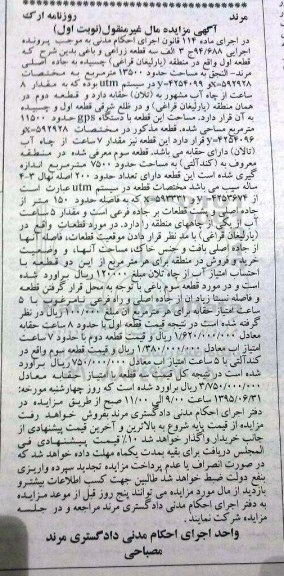 مرند روزنامه ارک
آگهی مزایده مال غیرمنقول(نوبت اول)
در اجرای ماده ۱۱۴ قانون اجرای احکام مدنی به موجب پرونده
اجرایی ۹۴/۶۸۸ج ۳ الف سه قطعه زراعی و باغی بدین شرح که
قطعه اول واقع در منطقه (یارلیغان فراغی) چسبیده به جاده اصلی
مرند- النجق به مساحت حدود ۱۳۵۰۰ مترمربع به مختصات
x=۵۹۲۹۲۸ y=۴۲۵۴۰۹۹ در سیستم utm بوده که به مقدار ۸
ساعت از چاه آب مشهور به (تالان) حقابه دارد و قطعه دوم در
همان منطقه (یارلیغان فراغی) و در ظلع شرقی قطعه اول و چسبیده
به آن قرار دارد. مساحت این قطعه با دستگاه gps حدود ۱۱۵۰۰
مترمربع مساحی شده. قطعه مذکور در مختصات x=۵۹۲۹۲۸
y=۴۲۵۴۰۹۶ قرار دارد این قطعه نیز مقدار ۷ ساعت از چاه آب
(تالان) دارای حقابه می باشد. قطعه سوم معرفی شده در منطقه
معروف به (کندآلتی) به مساحت حدود ۷۵۰۰ مترمربع اندازه
گیری شده است این قطعه دارای تعداد حدود ۲۰۰ اصله نهال ۳-۴
ساله سیب می باشد مختصات قطعه در سیستم utm عبارت است
از y=۴۲۵۳۶۷۴ که به فاصله حدود ۱۵۰ متر از
جاده اصلی بوده و بر قطعات بر جاده فرعی است و مقدار ۵ ساعت
آب از یکی از چاههای منطقه را دارد. در مورد قطعات واقع در
(یارلیغان فراغی) با مد نظر قرار دادن موقعیت قطعات، فاصله آنها
از جاده اصلی بافت و جنس خاک، مساحت آنها، وضعیت
خرید و فروش در منطقه برای هر متر مربع از این دو قطعه با
احتساب امتیاز آب از چاه تلان مبلغ ۱۲۰۰۰۰ ریال برآورد شده
است و در مورد قطعه سوم باغی با توجه به محل قرار گرفتن قطعه
و فاصله نسبتا زیاد آن از جاده اصلی و راه فرعی نامرغوب با ۵
ساعت امتیاز حقابه برای هر مترمربع آن مبلغ ۱۰۰/۰۰۰ ریال در نظر
گرفته شده است در نتیجه قیمت قطعه اول با حدود ۸ ساعت حقابه
معادل ۱/۶۲۰/۰۰۰/۰۰۰ ریال و قیمت قطعه دوم با حدود ۷ ساعت
امتیاز آب معادل ۱/۳۸۰/۰۰۰/۰۰۰ ریال و قیمت قطعه سوم واقع در
کندآلتی با ۵ ساعت امتیاز آب معادل ۷۵۰/۰۰۰/۰۰۰ ریال برآورد
شده است در نتیجه کل قیمت سه قطعه با امتیاز حقابه معادل
۳/۷۵۰/۰۰۰/۰۰۰ ریال برآورد شده است که روز چهارشنبه مورخه:
۱۳۹۵/۰۶/۳۱ ساعت ۹/۰۰ الی ۱۱/۰۰ صبح از طریق مزایده در
دفتر اجرای احکام مدنی دادگستری مرند بفروش خواهد رفت
مزایده از قیمت پایه شروع به بالاترین و آخرین قیمت پیشنهادی از
جانب خریدار واگذار خواهد شد ۱۰٪ قیمت پیشنهادی فی
المجلس دریافت برای بقیه بمدت یکماه مهلت داده خواهد شد که
در صورت انصراف یا عدم پرداخت مزایده تجدید سپرده واریزی
بنفع دولت ضبط خواهد شد طالبین جهت کسب اطلاعات بیشتر و
بازدید از مال مورد مزایده می توانند پنج روز قبل از موعد مزایده
به دفتر اجرای احکام مدنی دادگستری مرند مراجعه و در جلسه
مزایده شرکت نمایند.
واحد اجرای احکام مدنی دادگستری مرند
مصباحی